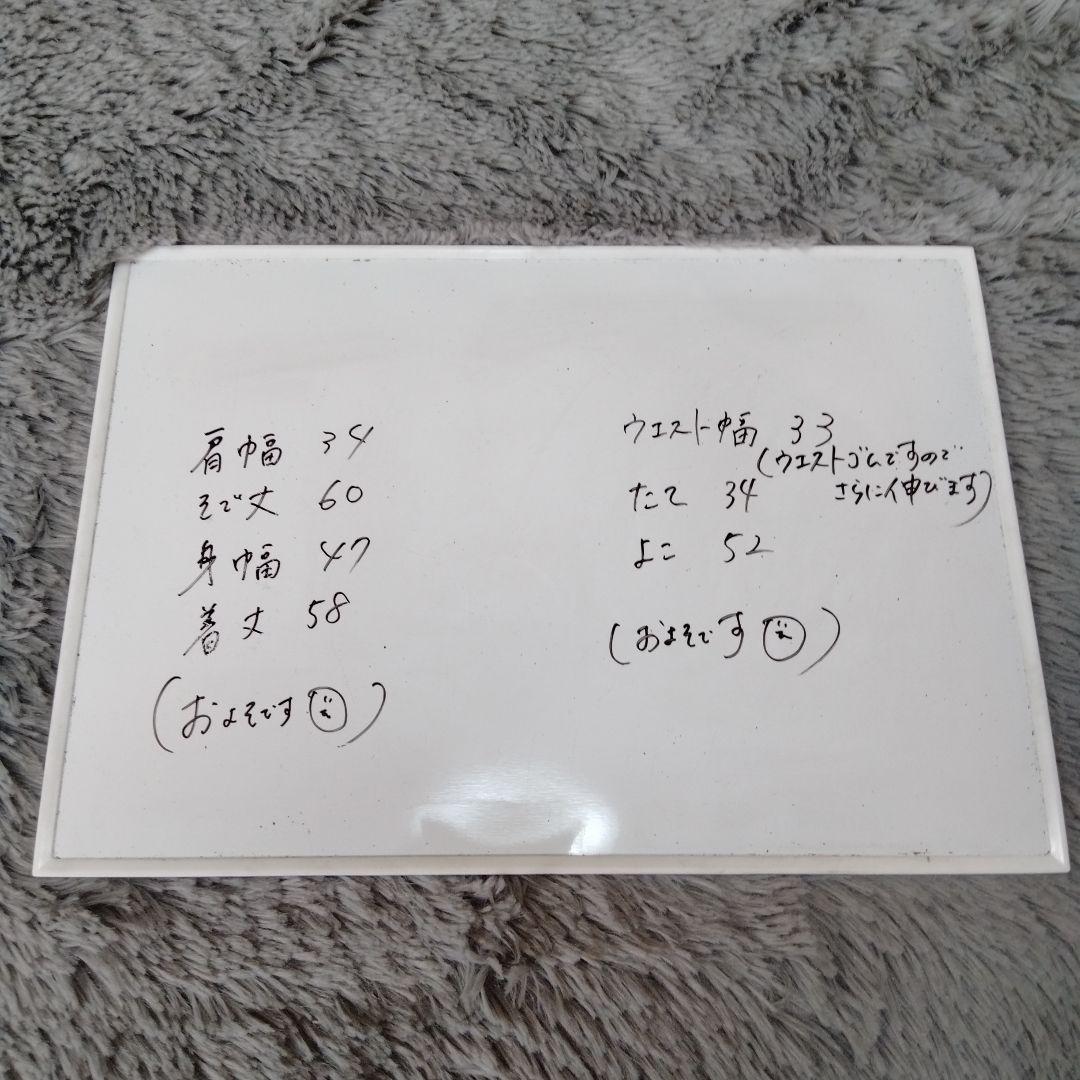 肩幅 34
そで丈 60
身幅 47
着丈 58
(およそです)
ウエスト幅 33
(ウエストゴムですので
さらに伸びます)
たて 34
よこ 52
(およそです)